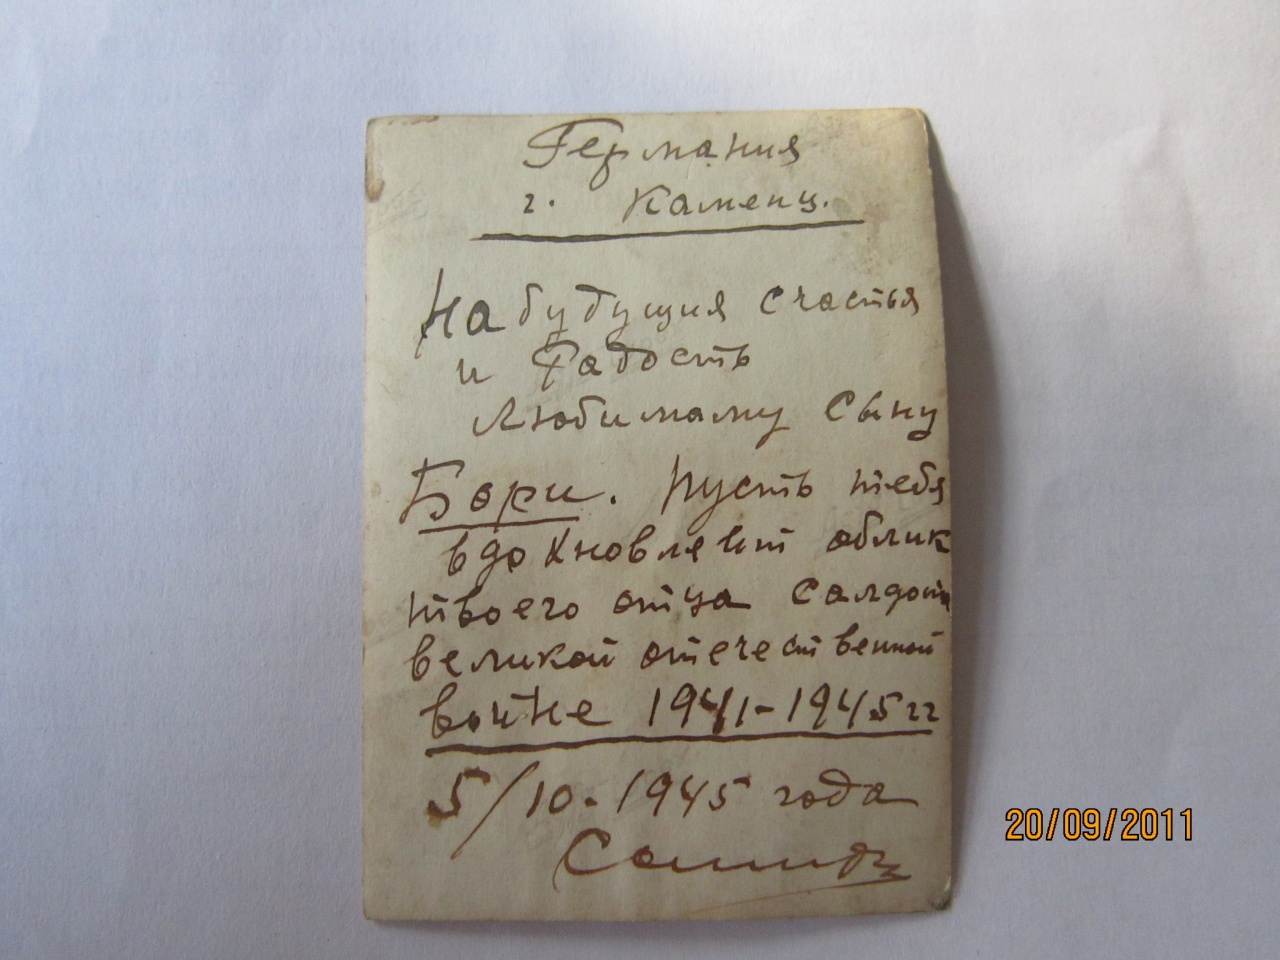 Германия
г. Каменц.
На будущия счастья
и радость
Любимаму Сыну
Бори. Пусть тебя
вдохновляет облик
твоего отца Салдата
великой отечественной
войне 1941-1945 гг
5/10-1945 года
20/09/2011